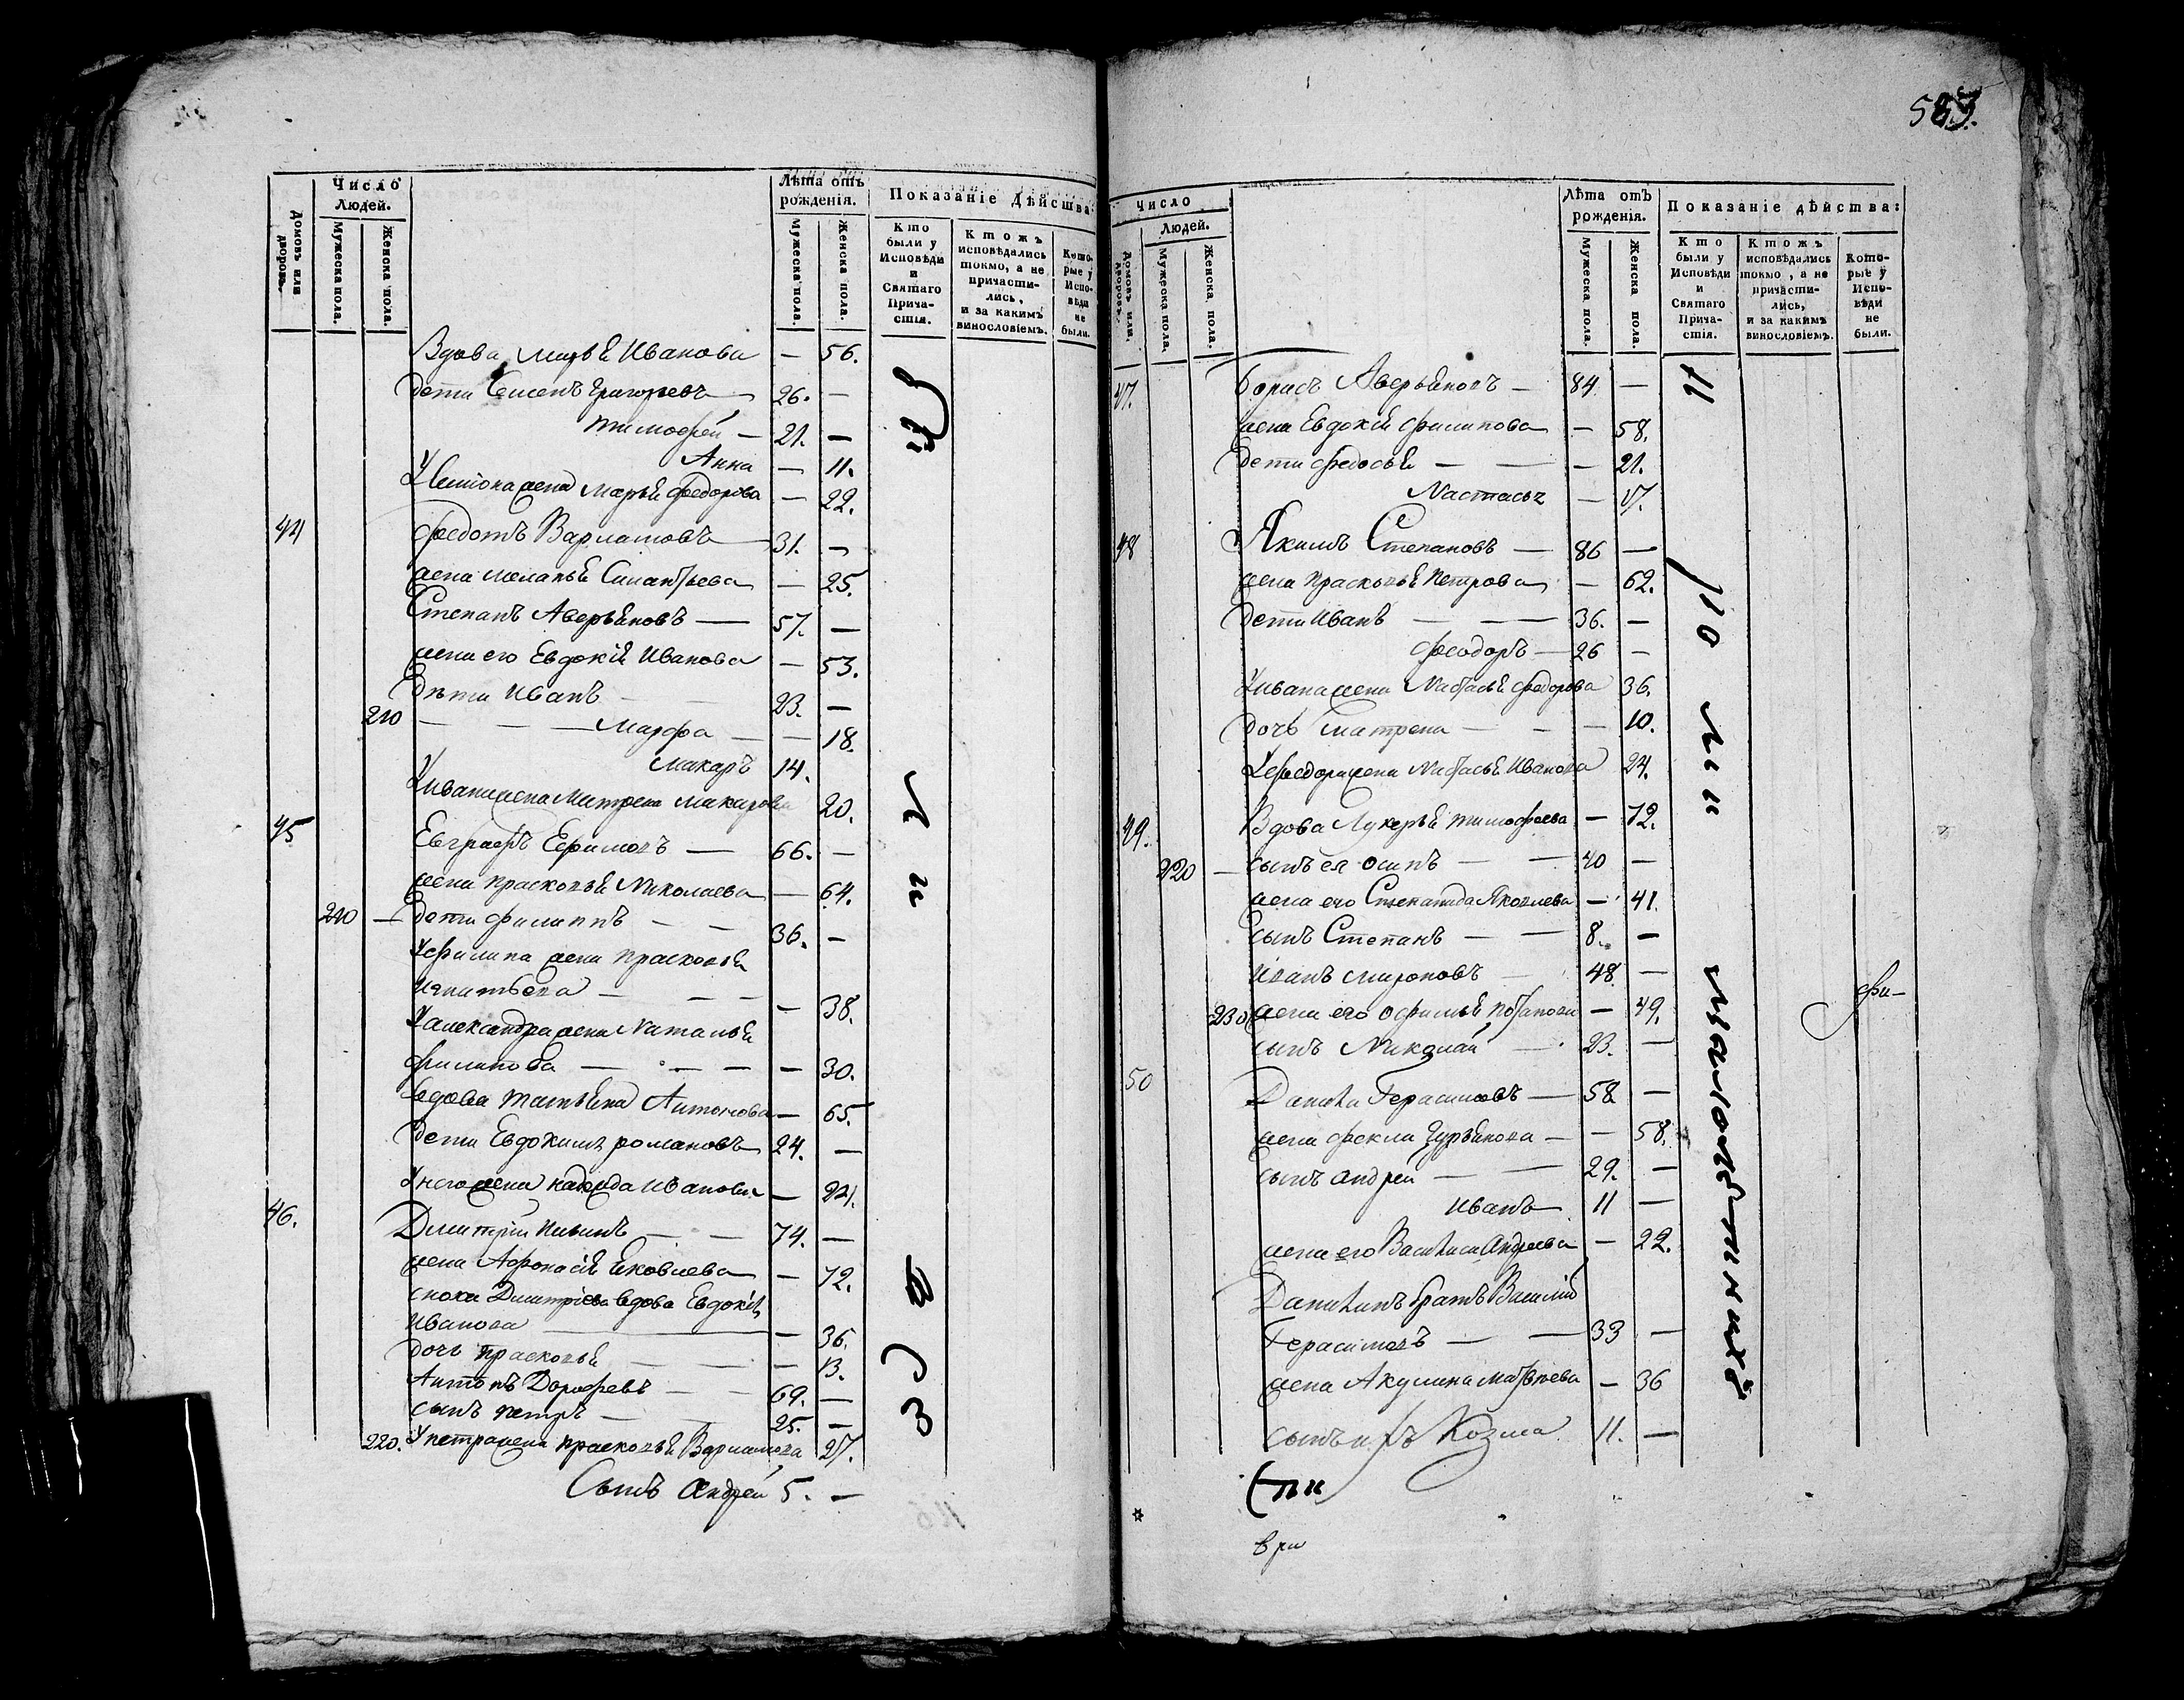 Число Людей.
Лѣта отъ рожденія.
Показаніе Дѣйства
Домовъ или дворовъ.
Мужеска пола.
Женска пола.
Мужеска пола.
Женска пола.
Кто были у Исповѣди и Святаго Прича-стія.
Ктожъ исповѣдались токмо, а не причасти-лись, и за какимъ винословіемъ.
Кото-рые у Испо-вѣди не были.
Вдова Марья Иванова — 56.
дети Семенъ Григорьевъ 26. —
Тимофей — 21. —
Анна — 11.
У Семиона жена Марья Федорова — 22.
44 Федотъ Варламовъ 31. —
жена Меланья Силантьева — 25.
Степанъ Аверьяновъ — 57. —
жена его Евдокия Иванова — 53.
дети Иванъ — 23. —
210 — — — Марфа — — 18.
Макаръ 14.
У Ивана жена Матрена Макарова 20.
45 Евграфъ Ефимовъ — 66. —
жена Прасковья Николаева — 64.
210 — дети Филиппъ — — 36. —
У Филипа жена Прасковья
Игнатьева — — — — 38.
У Александра жена Наталья
Филипова — — — — 30.
вдова Татьяна Антонова — 65.
дети Евдокимъ Романовъ 24. —
У него жена Надежда Иванова — 24.
46. Димитрий — — 74. —
жена Афонасия Яковлева — 72.
сноха Димитриева вдова Евдокия
Иванова — — 36.
дочь Прасковья — — — 13.
Антонъ Дорофевъ — — 69. —
сынъ Петръ — 25. —
220. У Петра жена Прасковья Варламова 27.
Сынъ Андрей 5. —
583.
Число Людей.
Лѣта отъ рожденія.
Показаніе дѣйства:
Домовъ или дворовъ.
Мужеска пола.
Женска пола.
Мужеска пола.
Женска пола.
Кто были у Исповѣди и Святаго Прича-стія.
Ктожъ исповѣдались токмо, а не причасти-лись, и за какимъ винословіемъ.
Кото-рые у Испо-вѣди не были.
47. Борисъ Аверьяновъ — 84 —
жена Евдокия Филипова — 58.
дети Федосья — — — 21.
Настасья — 17.
48 Якимъ Степановъ — 86 —
жена Прасковья Петрова — 62.
дети Иванъ — — — 36. —
Феодоръ — 26 —
У Ивана жена Настасья Федорова 36.
дочь Матрена — — — 10.
У Феодора жена Настасья Иванова 24.
49. Вдова Лукерья Тимофеева — 72.
220 — сынъ ея Осипъ — — 40 —
жена его Степанида Яковлева — 41.
сынъ Степанъ — — 8. —
Иванъ Мироновъ 48 —
230 жена его Офимья Потапова — 49.
сынъ Николай — 23. —
50 Данила Герасимовъ — 58 —
жена Фекла Гурьянова — — 58.
сынъ Андрей — — 29. —
Иванъ 11 —
жена его Василиса Андреева — 22.
Данилинъ братъ Василий
Герасимовъ — — 33 —
жена Акулина Матвеева — 36
сынъ ихъ Козма 11. —
малолѣтнихъ
фи-